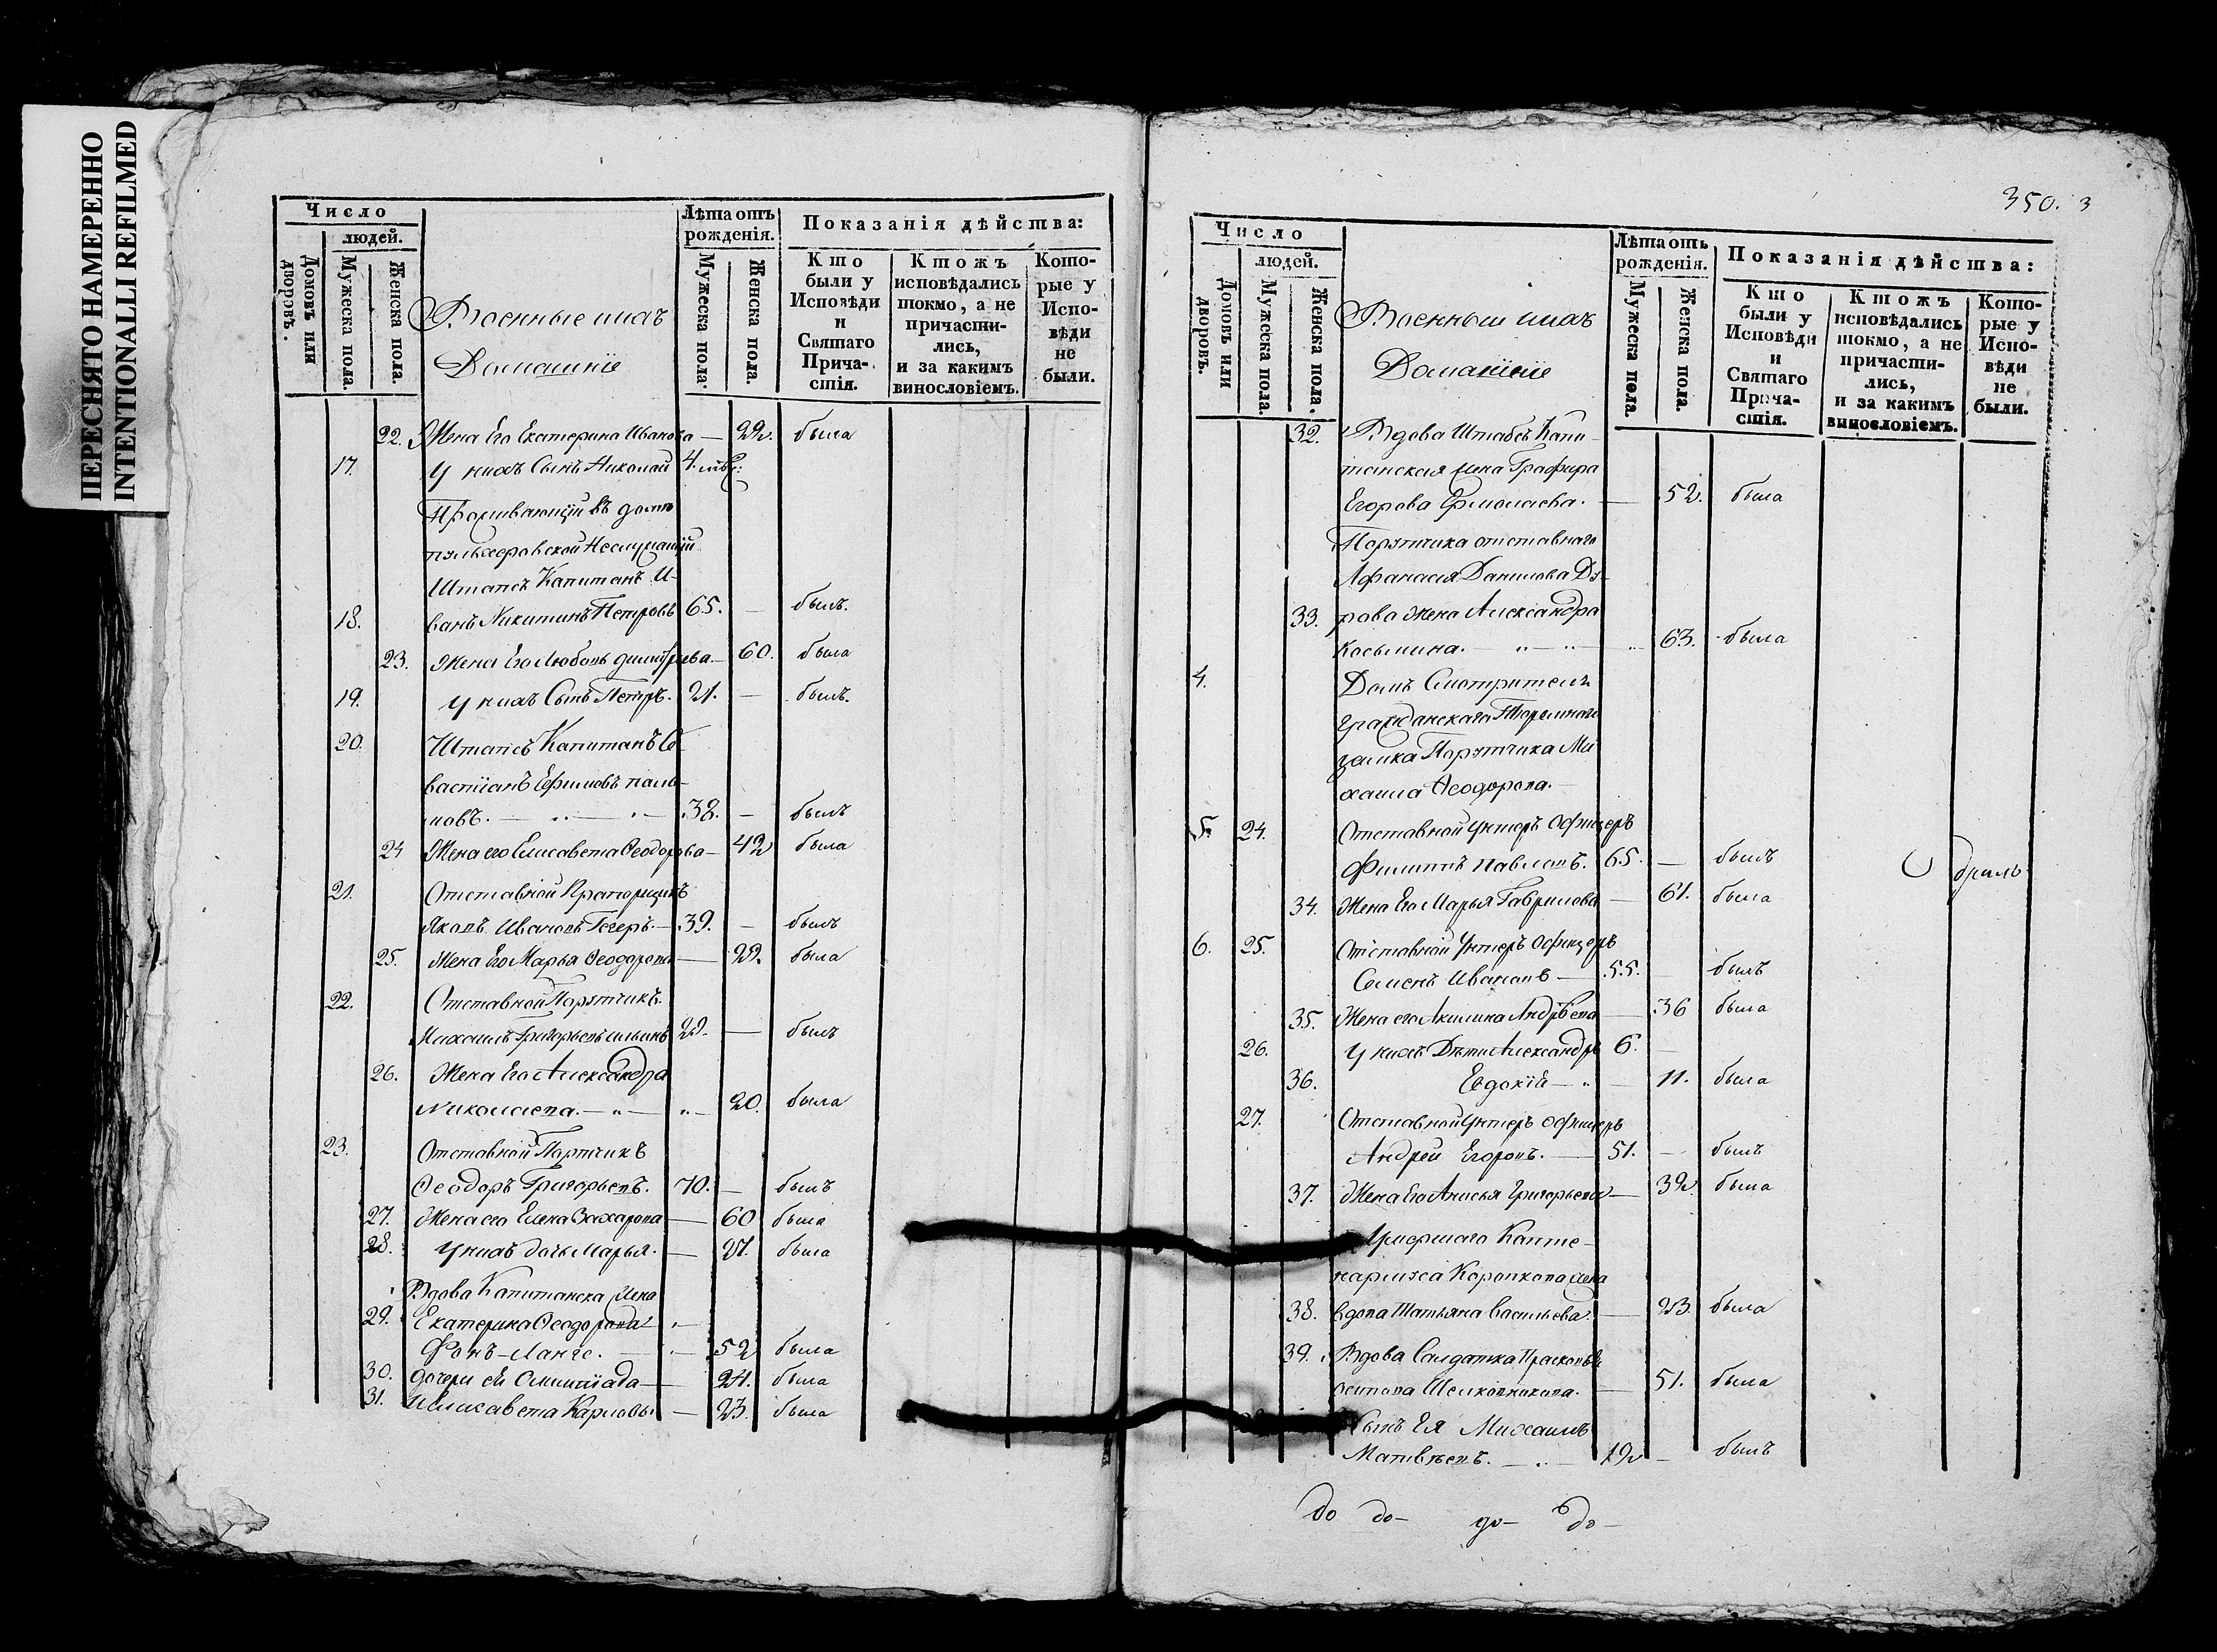 ПЕРЕСНЯТО НАМЕРЕННО
INTENTIONALLI REFILMED
Число
людей.
Домовъ или дворовъ.
Мужеска пола.
Женска пола.
Военные ихъ
Домашніе
Лѣта отъ рожденія.
Мужеска пола.
Женска пола.
Показанія дѣйства:
Кто были у Исповѣди и Святаго Причастія.
Ктожъ исповѣдались токмо, а не причастились, и за какимъ винословіемъ.
Которые у Исповѣди не были.
22. Жена Его Екатерина Иванова — 22. была
17. У нихъ Сынъ Николай 4.
Проживающій въ домѣ
Штапсъ Капитанъ И-
18. ванъ Никитинъ Петровъ 65. — былъ.
23. Жена Его Любовь Димитріева — 60. была
19. У нихъ Сынъ Петръ. 21. — былъ.
20. Штапсъ Капитанъ Се-
вастіанъ Ефимовъ
новъ. — 38. — былъ
24 Жена его Елисавета Ѳеодорова — 42 была
21. Отставной Прапорщикъ
Яковъ Ивановъ Гегеръ. — 39. — былъ
25. Жена Его Марья Ѳеодорова — 22. была
22. Отставной Порутчикъ
Михаилъ Григорьевъ Ильинъ 29. — былъ
26. Жена Его Александра
Николаева. — „ — „ — 20. была
23. Отставной Портчикъ
Ѳеодоръ Григорьевъ. 70. — былъ
27. Жена его Елена Захарова — 60 была
28. У нихъ дочь Марья. — 21. была
Вдова Капитанска жена
29. Екатерина Ѳеодорова
Фонъ-Ланге. — 52 была
30. Дочери ея — 24. была
31. Иелисавета Карловы — 23. была
350. 3
Число
людей.
Домовъ или дворовъ.
Мужеска пола.
Женска пола.
Военныи ихъ
Домашніе
Лѣта отъ рожденія.
Мужеска пола.
Женска пола.
Показанія дѣйства:
Кто были у Исповѣди и Святаго Причастія.
Ктожъ исповѣдались токмо, а не причастились, и за какимъ винословіемъ.
Которые у Исповѣди не были.
32. Вдова Штабсъ Капи-
танская жена Графира
Егорова Ермолаева. — 52. была
Порутчика отставнаго
Афанасія Данилова Ду-
33. рова Жена Александра
Косьмина. — „ — „ „ 63. была
4. Домъ Смотрителя
гражданскаго Тюремнаго
замка Порутчика Ми-
хаила Ѳеодорова. —
5. 24. Отставной Унтеръ Офицеръ
Филиппъ Павловъ. 65. — былъ
34. Жена Его Марья Гаврилова — 61. была
6. 25. Отставной Унтеръ Офицеръ
Семенъ Ивановъ — 55. — былъ
35. Жена его Акилина Андрѣева — 36 была
26. У нихъ Дѣти Александръ 6. —
36. Евдокій — „ — 11. была
27. Отставной Унтеръ Офицеръ
Андрей Егоровъ. — 51. — былъ
37. Жена Его Анисья Григорьева — 32. была
Умершаго Капте-
нармуса жена
38. вдова Татьяна Васильева. — 23. была
39. Вдова Салдатка Прасковья
Осипова Шелковникова. — 51. была
Сынъ Ея Михаилъ
Матвѣевъ. — 12 — былъ
до до- до- до-